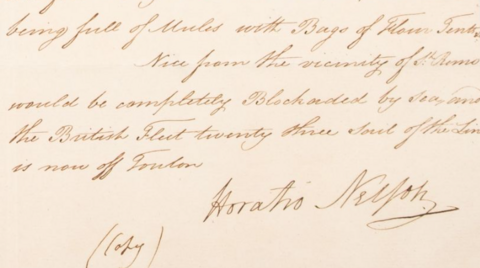 being full of Mules with Bags of Flour
Nice from the vicinity of St. Remo
would be completely Blockaded by sea, and
the British Fleet twenty three sail of the Lin
is now off Toulon
Horatio Nelson
(Copy)